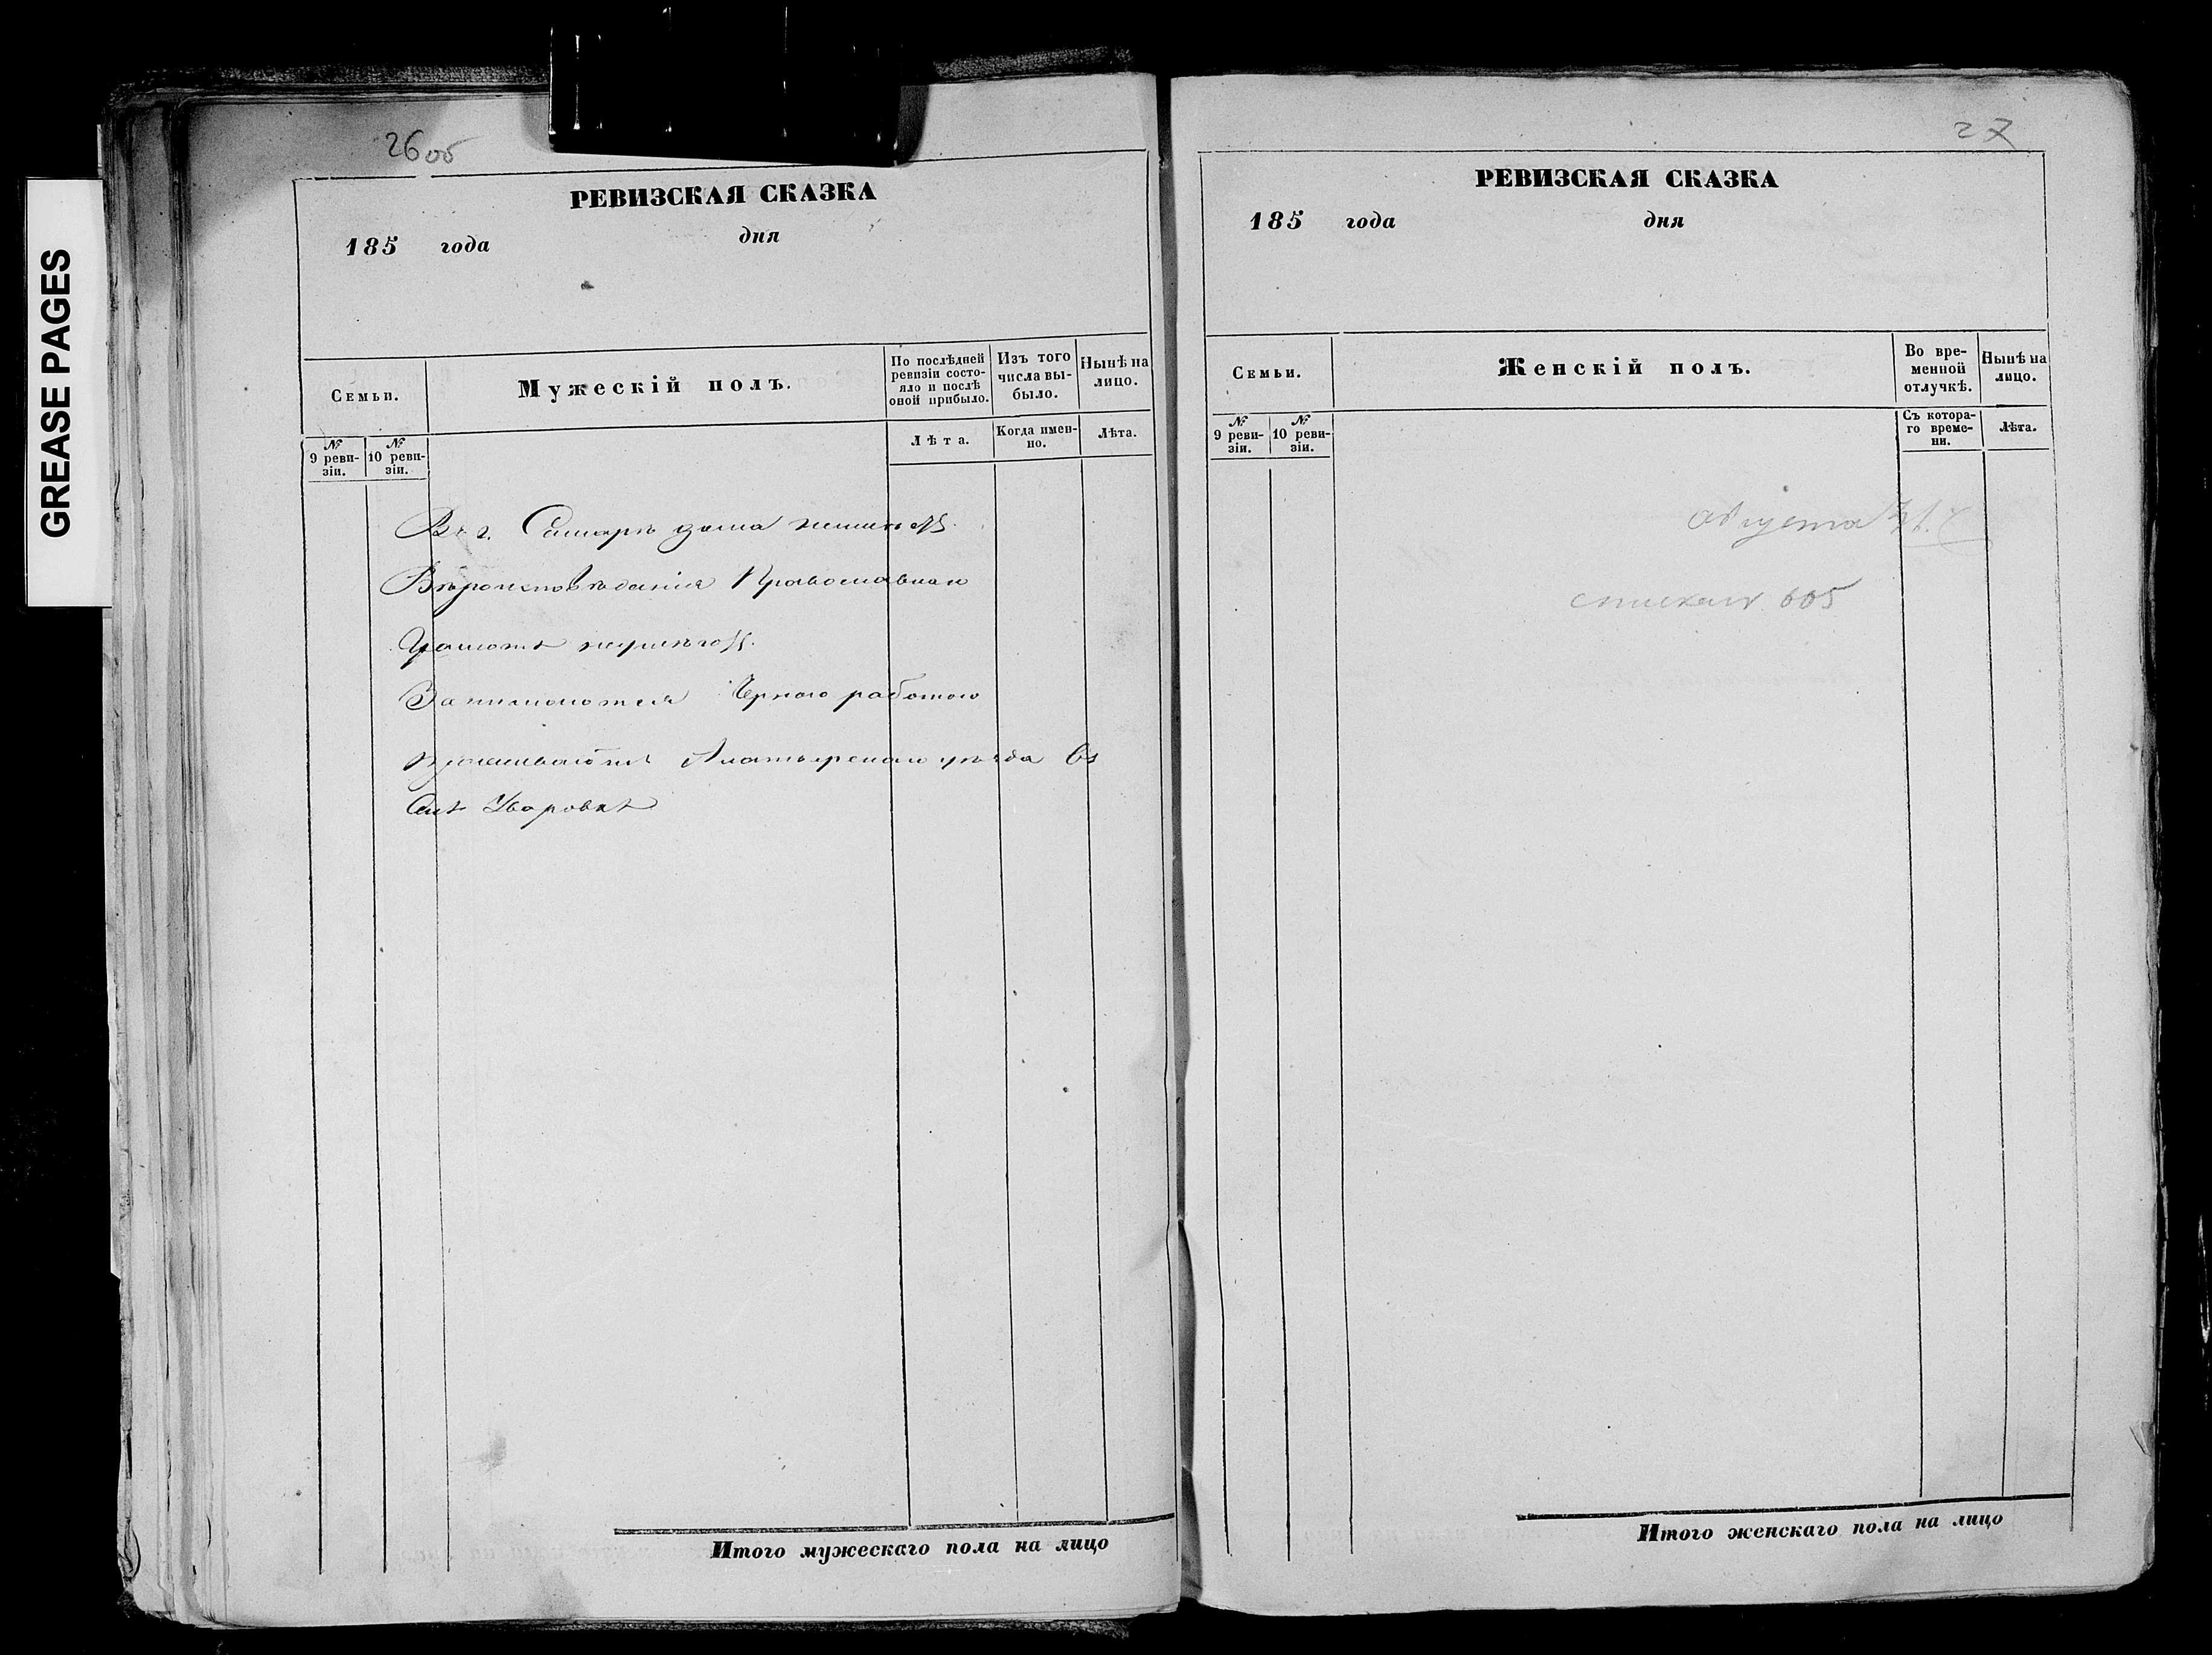 GREASE PAGES
26 об
РЕВИЗСКАЯ СКАЗКА
185 года дня
Семьи.
Мужескій полъ.
По послѣдней ревизіи состояло и послѣ оной прибыло.
Изъ того числа выбыло.
Нынѣ на лицо.
№ 9 ревизіи.
№ 10 ревизіи.
Лѣта.
Когда именно.
Лѣта.
Въ г. Самарѣ дома
Вѣроисповѣданія Православнаго
Грамотѣ
Занимаются Черною работою
Алатырскаго уѣзда въ
Селѣ Уваровкѣ
Итого мужескаго пола на лицо
27
РЕВИЗСКАЯ СКАЗКА
185 года дня
Семьи.
Женскій полъ.
Во временной отлучкѣ.
Нынѣ на лицо.
№ 9 ревизіи.
№ 10 ревизіи.
Съ котораго времени.
Лѣта.
Августа
605
Итого женскаго пола на лицо